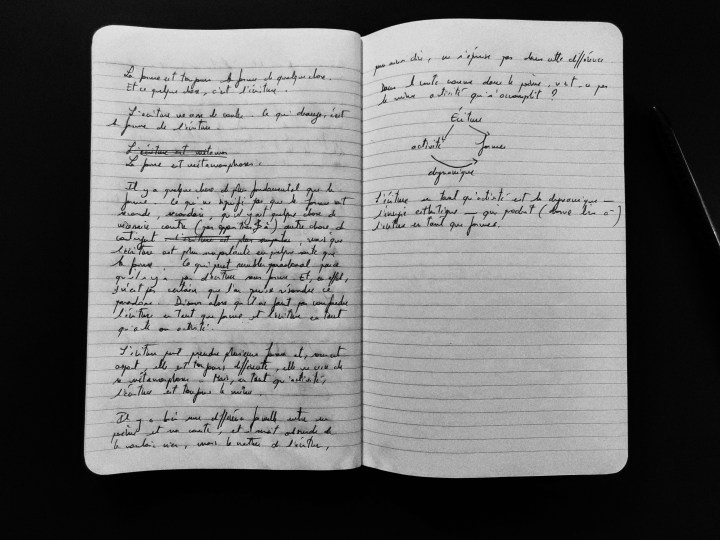 La forme est toujours la forme de quelque chose.
Et ce quelque chose, c'est l'écriture.
L'écriture ne cesse de couler. Ce qui change, c'est
la forme de l'écriture.
L'écriture est
La forme est métamorphose.
Il y a quelque chose de plus fondamental que la
forme. Ce qui ne signifie pas que la forme est
seconde, secondaire, qu'il y ait quelque chose de
nécessaire contre (par opposition à) autre chose de
contingent l'écriture est plus mais que
l'écriture est plus importante en quelque sorte que
la forme. Ce qui peut sembler paradoxal parce
qu'il n'y a pas d'écriture sans forme. Et, en effet,
il n'est pas certain que l'on puisse résoudre ce
paradoxe. Disons alors qu'il ne faut pas confondre
l'écriture en tant que forme et l'écriture en tant
qu'elle est activité.
L'écriture peut prendre plusieurs formes et,
elle est toujours différente, elle ne cesse de
se métamorphoser. Mais, en tant qu'activité,
l'écriture est toujours la même.
Il y a bien une différence formelle entre un
poème et un conte, et il serait absurde de
le vouloir nier, mais la nature de l'écriture,
pour ainsi dire, ne s'épuise pas dans cette différence.
Dans le conte comme dans le poème, n'est-ce pas
la même activité qui s'accomplit ?
Écriture
activité forme
dynamique
L'écriture en tant qu'activité est la dynamique —
esthétique — qui produit (donne lieu à)
l'écriture en tant que forme.